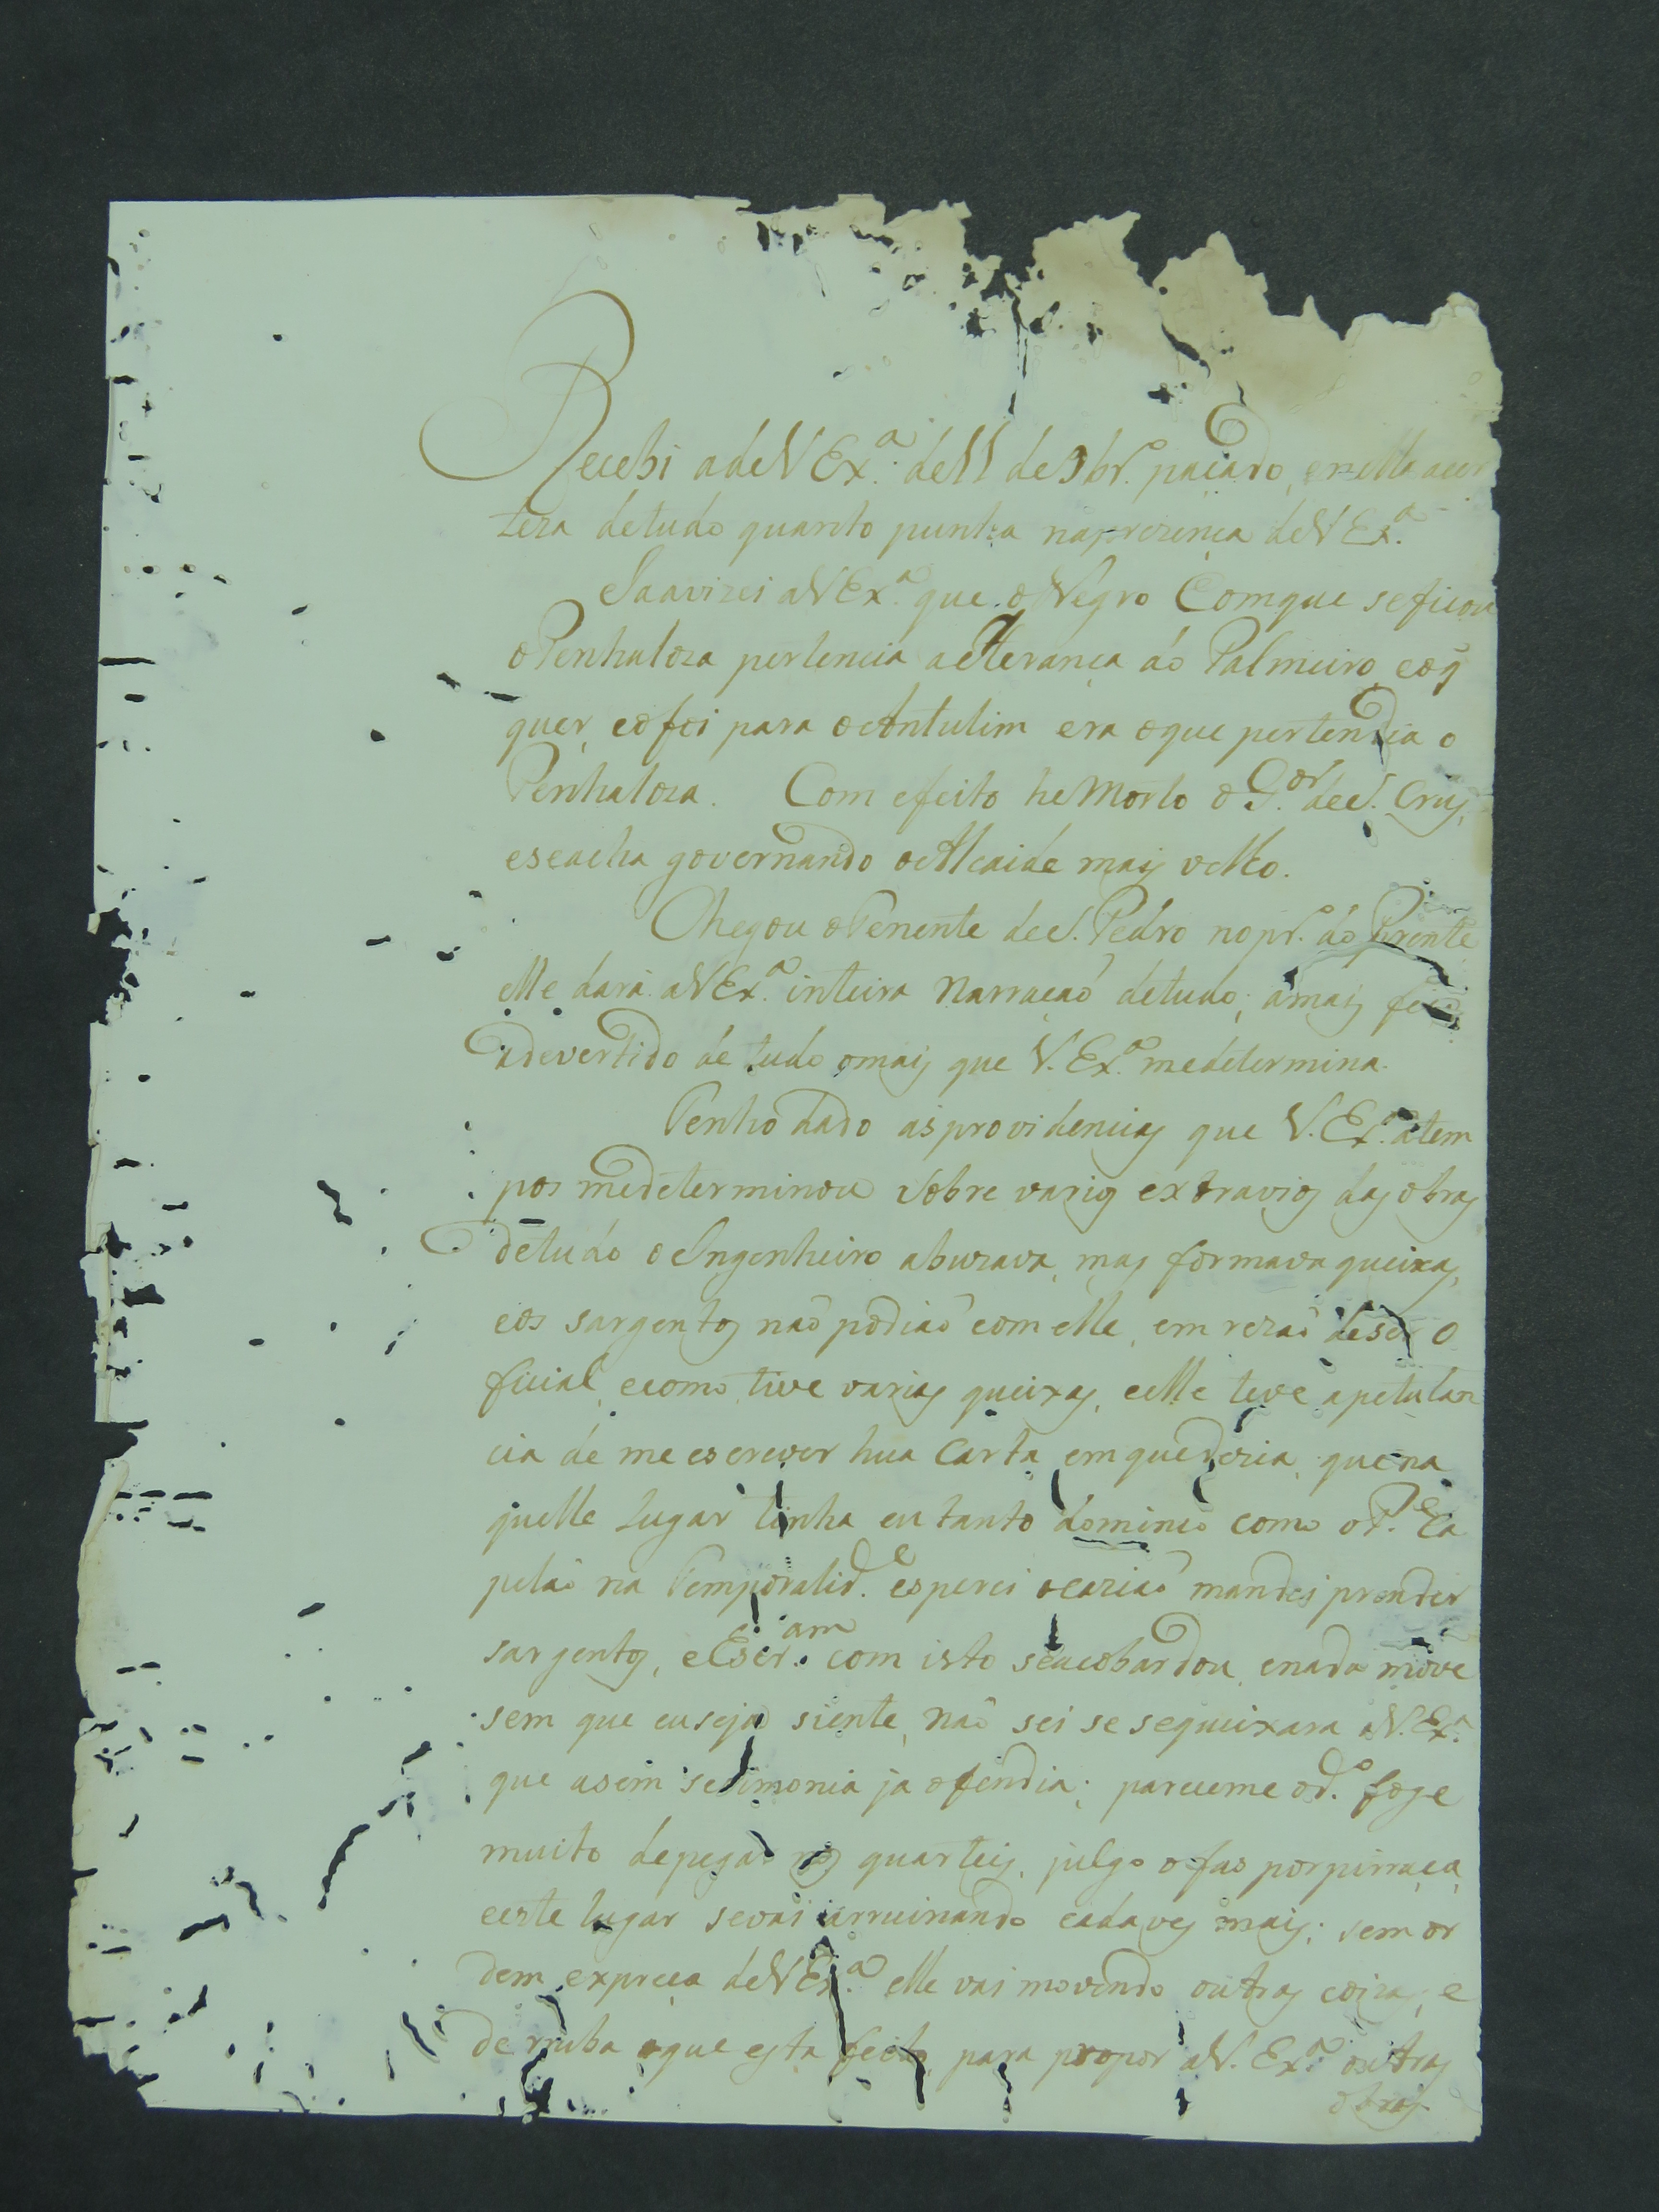 Recebi a de V Ex.ª de 11 de 9br.º paçado, enella acer
teza detudo quanto punha naprezença de V Ex.ª
Jaavizei aVEx.ª que o Negro Comque seficou
o Penhaloza pertencia aHerança do Palmeiro, eoq̃
quer, eofoi para o Antulim era oque pertendia o
Penhaloza. Com efeito he Morto o G.or de S. Cruz,
eseacha governando o Alcaide mais velho.
Chegou o Tenente de S. Pedro nopr.º do prezente
elle dará aVEx.ª inteira Narração detudo; ámais
adevertido de tudo omais que V. Ex.ª medetermina.
Tenho dado as providencias que V. Ex.ª atem
pos medeterminou Sobre varios extravios das obras
detudo o Ingenheiro abuzava, mas formava queixas,
eos sargentos não podião com elle, em rezão deser O
ficial, ecomo tive varias queixas, eelle teve apetulan
cia de me escrever hua Carta emquedezia, quena
quelle Lugar tinha eu tanto dominio como o P.e Ca
pelão na Temporalid.e esperei ocazião mandei prender
sargentos, eEscr.am com isto seacobardou, enada move
sem que euseja siente, não sei se sequeixara aV. Ex.ª
que asem serimonia ja ofendia; pareceme od.º foge
muito depegar nos quarteis, julgo ofas porpirraça,
eeste lugar sevai arruinando cadaves mais; sem or
dem expreça deVEx.ª elle vai movendo outras coizas, e
derruba oque esta feito, para propor aV. Ex.ª outras
obras